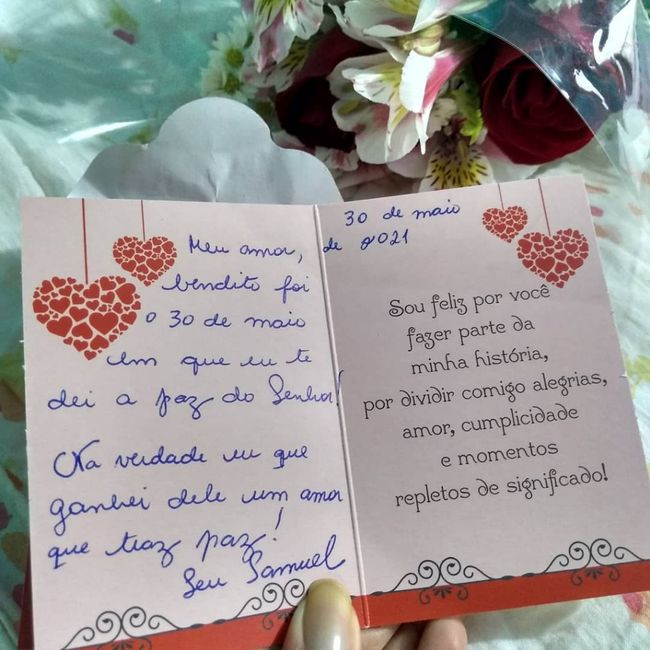 Meu amor,
bendito foi
o 30 de maio
em que eu te
dei a paz do Senhor!
Na verdade eu que
ganhei dele um amor
que traz paz!
Seu Samuel
30 de maio
de 2021
Sou feliz por você
fazer parte da
minha história,
por dividir comigo alegrias,
amor, cumplicidade
e momentos
repletos de significado!